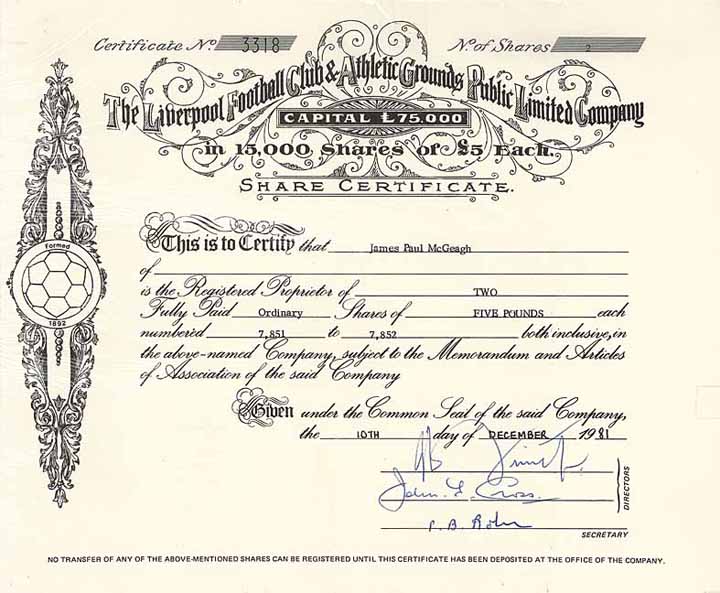 Certificate No. 3318 No. of Shares 2
The Liverpool Football Club & Athletic Grounds Public Limited Company
CAPITAL £75.000
in 15,000 Shares of £5 Each.
SHARE CERTIFICATE.
This is to Certify that James Paul McGeagh
of
is the Registered Proprietor of TWO
Fully Paid Ordinary Shares of FIVE POUNDS each
numbered 7,851 to 7,852 both inclusive, in
the above-named Company, subject to the Memorandum and Articles
of Association of the said Company
Formed
1892
Given under the Common Seal of the said Company,
the 10TH day of DECEMBER 1981
John F. Cross.
DIRECTORS
SECRETARY
NO TRANSFER OF ANY OF THE ABOVE-MENTIONED SHARES CAN BE REGISTERED UNTIL THIS CERTIFICATE HAS BEEN DEPOSITED AT THE OFFICE OF THE COMPANY.